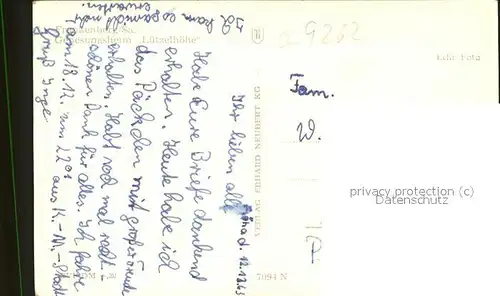 Frankenberg/Sa.
Genesungsheim „Lützelhöhe"
Flöha d. 12.12.63
Ihr lieben alle
Habe Eure Briefe dankend
erhalten. Heute habe ich
das Päckchen mit großer Freude
erhalten. Habt noch mal recht-
schönen Dank für alles. Ich fahre
am 18.12. um 22 aus K.-M.-Stadt
Gruß Inge
Ich kann es gar nicht mehr
erwarten.
VERLAG ERHARD NEUBERT KG
7094 N
Echt Foto
9262
Fam.
W.
privacy protection(c)